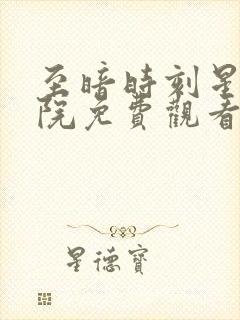 至暗時刻星
院免費觀看
星德寶